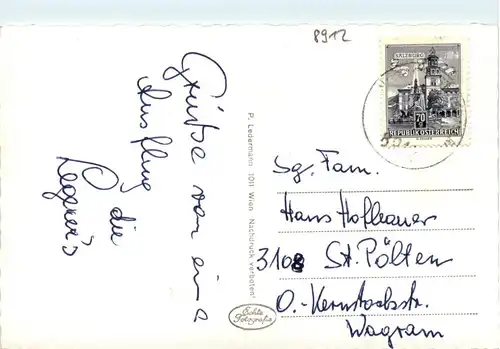 8912
SALZBURG
70
REPUBLIK ÖSTERREICH
Grüße von eine
Ausflug die
P. Ledermann 1011 Wien Nachdruck verboten!
Echte
Fotografie
Sg. Fam.
Hans Hofbauer
3108 St. Pölten
O.-Kernstockstr.
Wagram